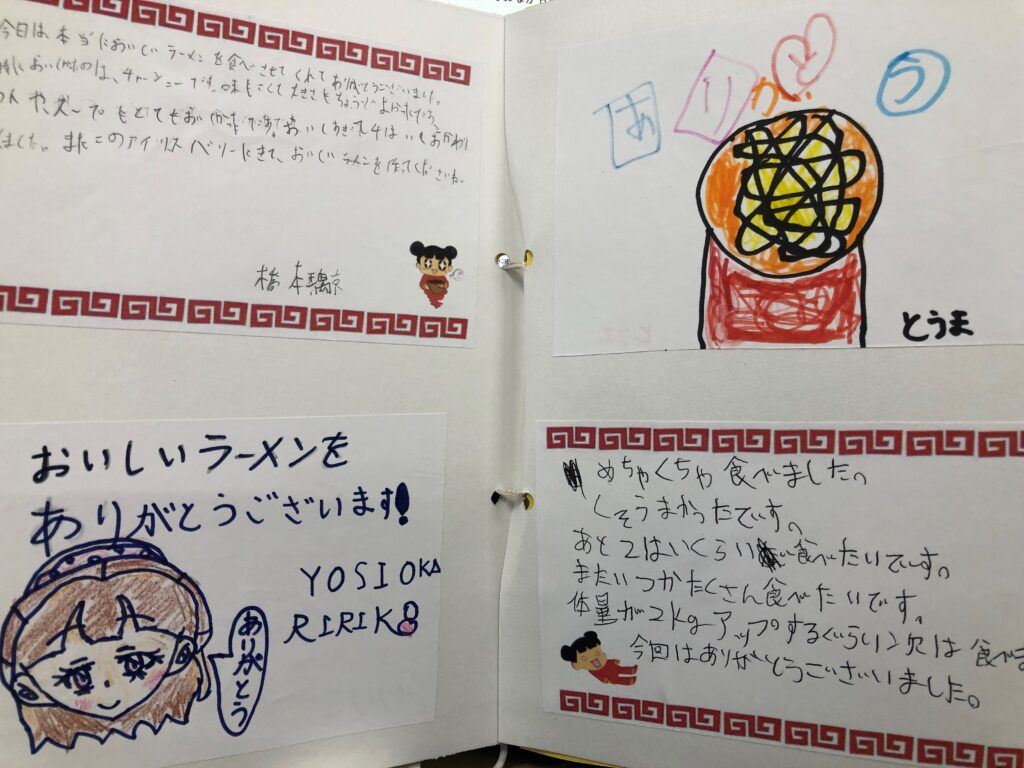 今日は本当においしいラーメンを食べさせてくれてありがとうございました。
特においしかったのは、チャーシューです。味もこくて大きさもちょうどよかったです。
スープもとてもおいしかったです。おいしすぎて4はいもおかわり
ました。またこのアイリスベリーにきて、おいしいラーメンを作ってくださいね。
橋本
ありがとう
とうま
おいしいラーメンを
ありがとうございます!
YOSIOKA
RIRIKO
ありがとう
めちゃくちゃ食べました。
くそうまかったでいす。
あと2はいくらい食べたいでいす。
またいつかたくさん食べたいです。
体量が2kgアップするぐらい次は食べま
今回はありがとうございました。